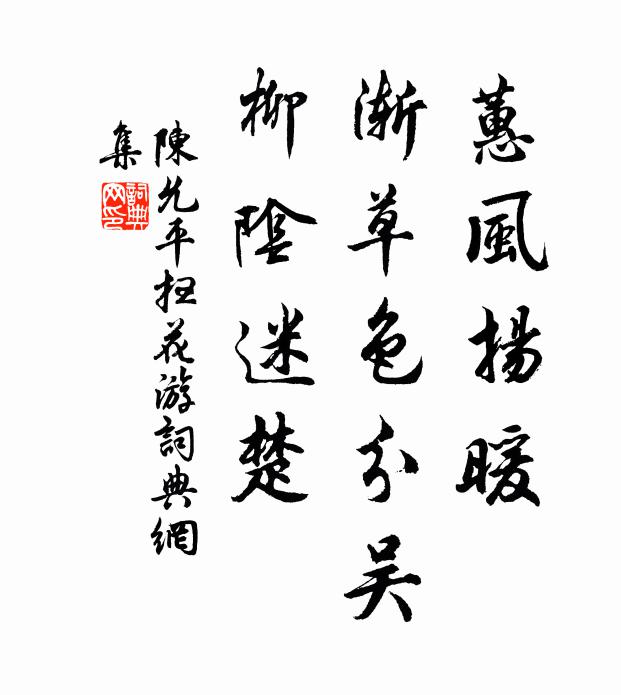 蕙風揚暖
漸草色分吴
柳陰迷楚
陳允平掃花游詞典網
集
詞典
网印